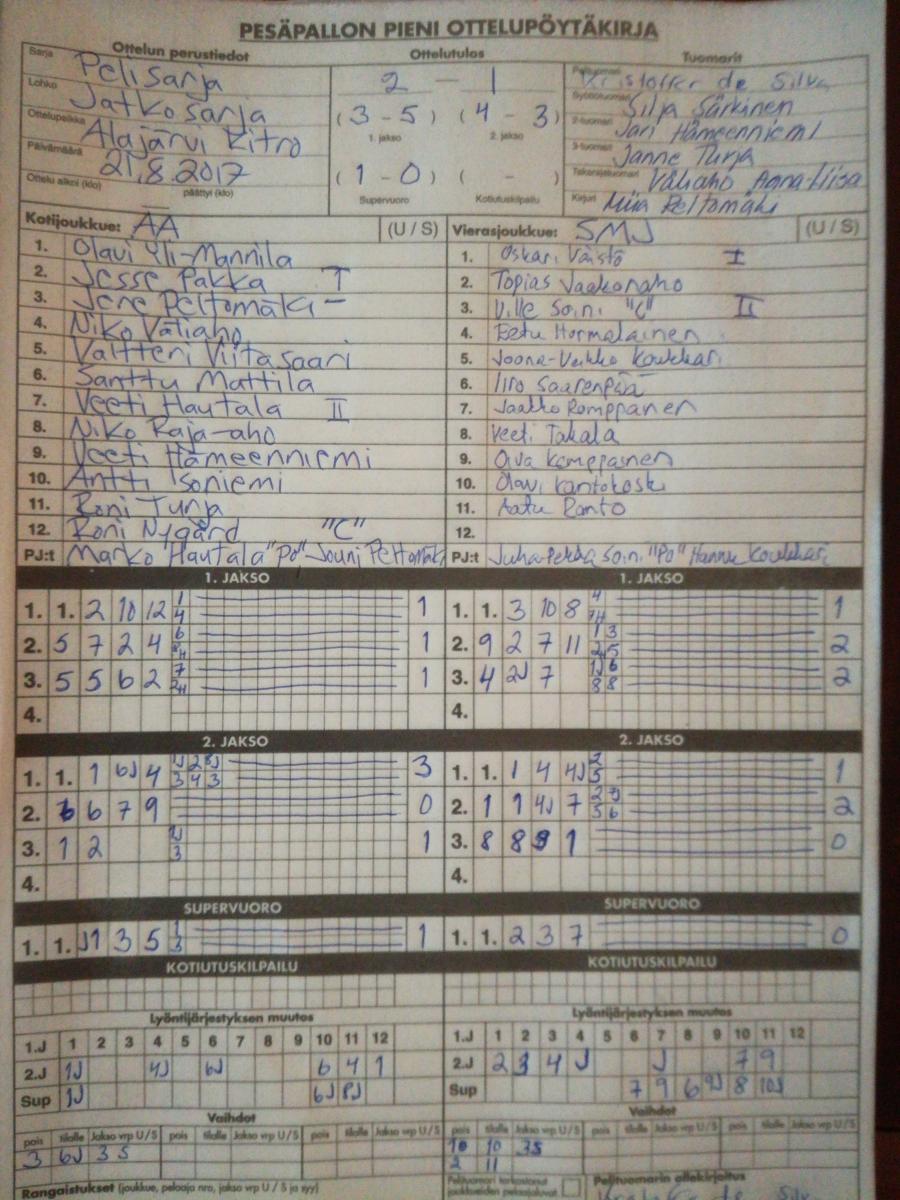 PESÄPALLON PIENI OTTELUPÖYTÄKIRJA
Ottelun perustiedot Ottelutulos Tuomarit
Sarja Pelisarja
Lohko Jatkosarja
Ottelupaikka Alajärvi Kitro
Päivämäärä 21.8.2017
Ottelu alkoi (klo) päättyi (klo)
2 - 1
(3 - 5) (4 - 3)
1. jakso 2. jakso
(1 - 0) ( - )
Supervuoro Kotiutuskilpailu
Pelituomari Kristoffer de Silva
Syöttötuomari Silja Särkinen
2-tuomari Jari Hämeenniemi
3-tuomari Janne Turja
Takarajatuomari Väliaho Anna-Liisa
Kirjuri Miia Peltomäki
Kotijoukkue: AA (U / S)
1. Olavi Yli-Mannila
2. Jesse Pakka I
3. Jere Peltomäki
4. Niko Väliaho
5. Valtteri Viitasaari
6. Santtu Mattila
7. Veeti Hautala II
8. Niko Raja-aho
9. Veeti Hämeenniemi
10. Antti Isoniemi
11. Roni Turja
12. Roni Nygård "C"
PJ:t Marko Hautala "PO", Jouni Peltomäki
Vierasjoukkue: SMJ (U / S)
1. Oskari Väistö I
2. Topias Jaakonaho
3. Ville Soini "C" II
4. Eetu Hormalainen
5. Joona-Veikko Koukkari
6. Iiro Saarenpää
7. Jaakko Romppanen
8. Veeti Takala
9. Oiva Kemppainen
10. Olavi Kantokoski
11. Aatu Ranto
12.
PJ:t Juha-Pekka Soini "PO" Hannu Koukkari
1. JAKSO
1. 1. 2 10 12 1 4 1
2. 5 7 2 4 6 1
3. 5 5 6 2 7 2H 1
4.
1. JAKSO
1. 1. 3 10 8 4 7H 1
2. 9 2 7 11 1 3 2 5 2
3. 4 2J 7 1J 6 8 8 2
4.
2. JAKSO
1. 1. 1 6J 4 1J 2 8J 3 4 3 3
2. 6 6 7 9 0
3. 1 2 1J 3 1
4.
2. JAKSO
1. 1. 1 4 4J 2 5 1
2. 1 1 4J 7 2 7J 5 6 2
3. 8 8 9 1 0
4.
SUPERVUORO
1. 1. J1 3 5 1 3 1
SUPERVUORO
1. 1. 2 3 7 0
KOTIUTUSKILPAILU
KOTIUTUSKILPAILU
Lyöntijärjestyksen muutos
1.J 1 2 3 4 5 6 7 8 9 10 11 12
2.J 1J 4J 6J 6 4 1
Sup 1J 6J 8J
Lyöntijärjestyksen muutos
1.J 1 2 3 4 5 6 7 8 9 10 11 12
2.J 2 3 4 J J 7 9
Sup 7 9 6 9J 8 10J
Vaihdot
pois tilalle Jakso vrp U / S pois tilalle Jakso vrp U / S pois tilalle Jakso vrp U / S
3 6J 3 S
Vaihdot
pois tilalle Jakso vrp U / S pois tilalle Jakso vrp U / S pois tilalle Jakso vrp U / S
10 10 3S
2 11
Rangaistukset (joukkue, pelaaja nro, jakso vrp U / S ja syy)
Pelituomari tarkastanut joukkueiden pelaajaluvat
Pelituomarin allekirjoitus